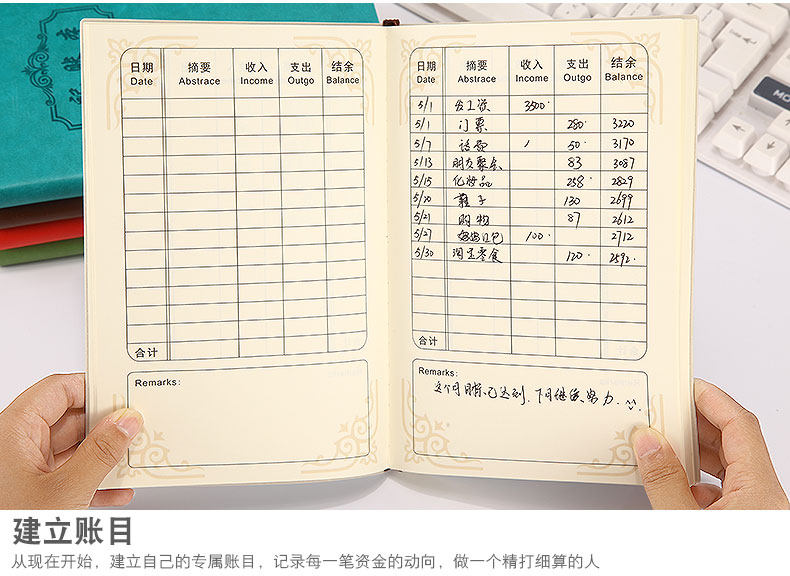 日期 摘要 收入 支出 结余
Date Abstract Income Outgo Balance
合计
Remarks:
日期 摘要 收入 支出 结余
Date Abstrace Income Outgo Balance
5/1 发工资 3500.
5/1 门票 280. 3220
5/7 话费 50. 3170
5/13 朋友聚会 83 3087
5/15 化妆品 258. 2829
5/20 鞋子 130 2699
5/21 购物 87 2612
5/27 妈妈红包 100. 2712
5/30 淘宝零食 120. 2592.
合计
Remarks:
这个月目标已达到.下月继续努力.
建立账目
从现在开始，建立自己的专属账目，记录每一笔资金的动向，做一个精打细算的人